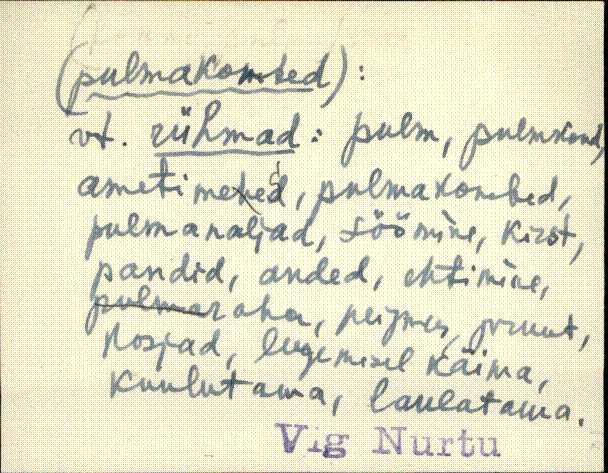 (pulmakombed):
vt. rühmad: pulm, pulmkond,
ametimehed, pulmakombed,
pulmanaljad, söömine, kirst,
pandid, anded, ehtimine,
pulmaraha, peigmees, pruut,
kosjad, lugemisel käima,
kuulutama, laulatama.
Vig Nurtu